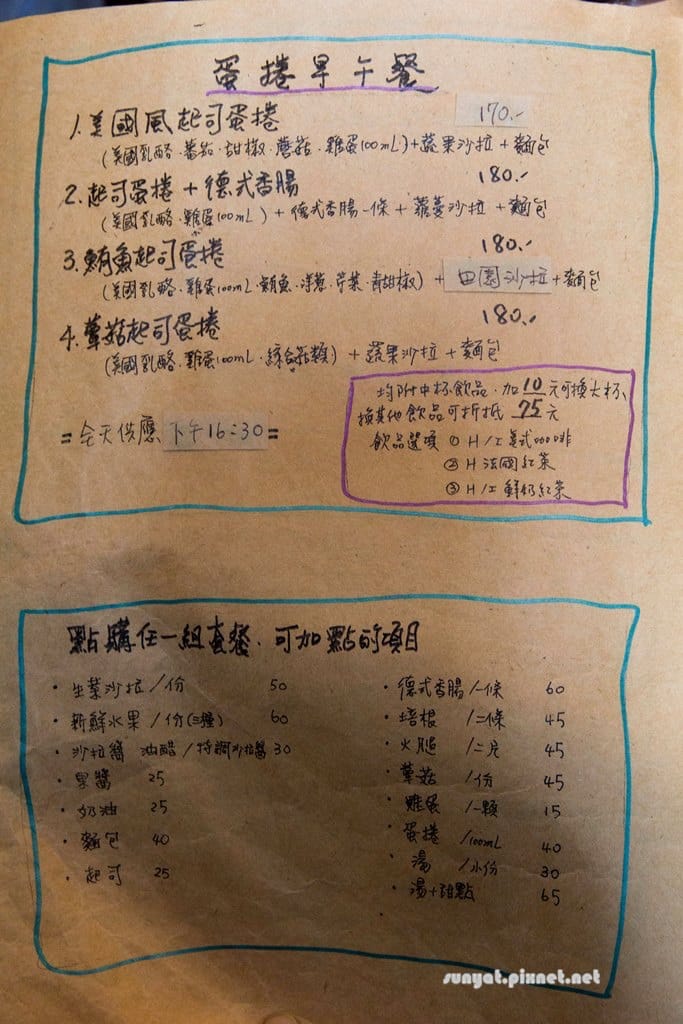 蛋捲早午餐
1.美國風起司蛋捲 170.-
(美國乳酪.蕃茄.甜椒.蘑菇.雞蛋100mL)+蔬果沙拉+麵包
2.起司蛋捲+德式香腸 180.-
(美國乳酪.雞蛋100mL)+德式香腸一條+蘿蔓沙拉+麵包
3.鮪魚起司蛋捲 180.-
(美國乳酪.雞蛋100mL.鮪魚.洋蔥.芹菜.青甜椒)+田園沙拉+麵包
4.蕈菇起司蛋捲 180.-
(美國乳酪.雞蛋100mL.綜合菇類)+蔬果沙拉+麵包
均附中杯飲品.加10元可換大杯、
換其他飲品可折抵75元
=全天供應下午16:30=
飲品選項 ① H/I 美式咖啡
② H 法國紅茶
③ H/I 鮮奶紅茶
點購任一組套餐.可加點的項目
・生菜沙拉/份 50
・新鮮水果/份(三種) 60
・沙拉醬 油醋/特調沙拉醬 30
・果醬 25
・奶油 25
・麵包 40
・起司 25
・德式香腸/一條 60
・培根/二條 45
・火腿/二片 45
・蕈菇/份 45
・雞蛋/一顆 15
・蛋捲/100mL 40
・湯/小份 30
・湯+甜點 65
sunyat.pixnet.net